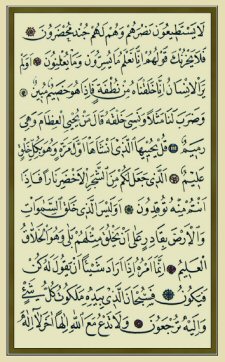 لَا يَسْتَطِيعُونَ نَصْرَهُمْ وَهُمْ لَهُمْ جُنْدٌ مُحْضَرُونَ
فَلَا يَحْزُنْكَ قَوْلُهُمْ إِنَّا نَعْلَمُ مَا يُسِرُّونَ وَمَا يُعْلِنُونَ أَوَلَمْ
يَرَ الْإِنْسَانُ أَنَّا خَلَقْنَاهُ مِنْ نُطْفَةٍ فَإِذَا هُوَ خَصِيمٌ مُبِينٌ
وَضَرَبَ لَنَا مَثَلًا وَنَسِيَ خَلْقَهُ قَالَ مَنْ يُحْيِي الْعِظَامَ وَهِيَ
رَمِيمٌ قُلْ يُحْيِيهَا الَّذِي أَنْشَأَهَا أَوَّلَ مَرَّةٍ وَهُوَ بِكُلِّ خَلْقٍ
عَلِيمٌ الَّذِي جَعَلَ لَكُمْ مِنَ الشَّجَرِ الْأَخْضَرِ نَارًا فَإِذَا
أَنْتُمْ مِنْهُ تُوقِدُونَ أَوَلَيْسَ الَّذِي خَلَقَ السَّمَوَاتِ
وَالْأَرْضَ بِقَادِرٍ عَلَى أَنْ يَخْلُقَ مِثْلَهُمْ بَلَى وَهُوَ الْخَلَّاقُ
الْعَلِيمُ إِنَّمَا أَمْرُهُ إِذَا أَرَادَ شَيْئًا أَنْ يَقُولَ لَهُ كُنْ
فَيَكُونُ فَسُبْحَانَ الَّذِي بِيَدِهِ مَلَكُوتُ كُلِّ شَيْءٍ
وَإِلَيْهِ تُرْجَعُونَ وَلَا تَدْعُ مَعَ اللَّهِ إِلَهًا آخَرَ لَا إِلَهَ